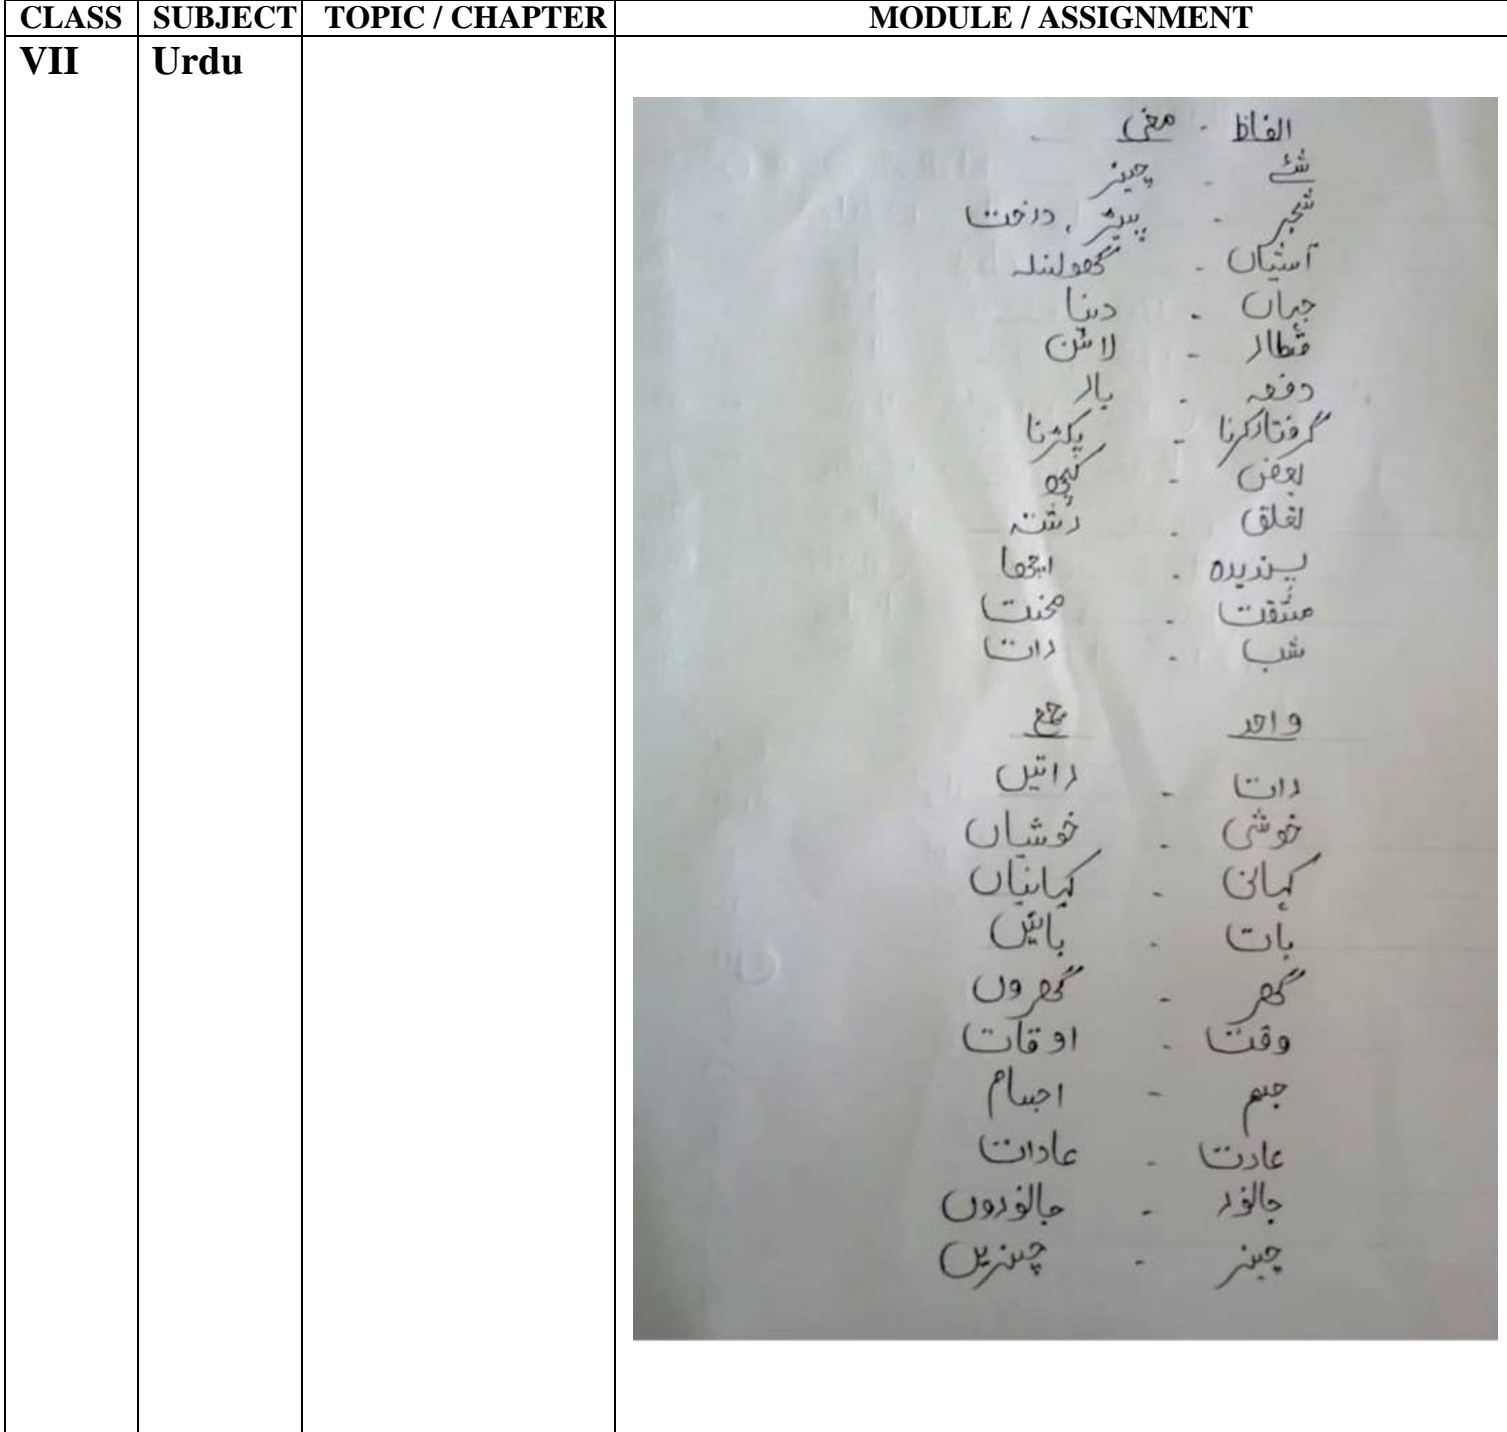 CLASS SUBJECT TOPIC / CHAPTER MODULE / ASSIGNMENT
VII Urdu
الفاظ - معنی
شئے - چیز
شجر - پیڑ، درخت
آشیاں - گھونسلہ
جہاں - دنیا
قطار - لائن
دفعہ - بار
گرفتار کرنا - پکڑنا
بعض - کچھ
تعلق - رشتہ
پسندیدہ - اچھا
مشقت - محنت
شب - رات
واحد جمع
رات - راتیں
خوشی - خوشیاں
کہانی - کہانیاں
بات - باتیں
گھر - گھروں
وقت - اوقات
جسم - اجسام
عادت - عادات
جانور - جانوروں
چیز - چیزیں